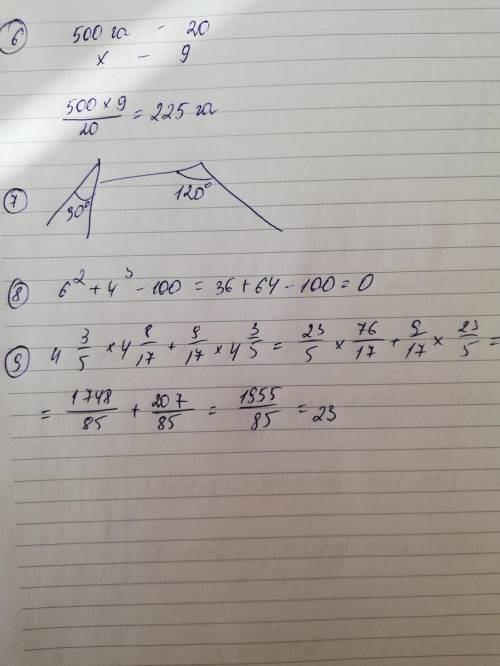 6 500 га - 20
x - 9
500 × 9 / 20 = 225 га
7 30° 120°
8 6² + 4³ - 100 = 36 + 64 - 100 = 0
9 4 3/5 × 4 8/17 + 9/17 × 4 3/5 = 23/5 × 76/17 + 9/17 × 23/5 =
= 1748/85 + 207/85 = 1955/85 = 23